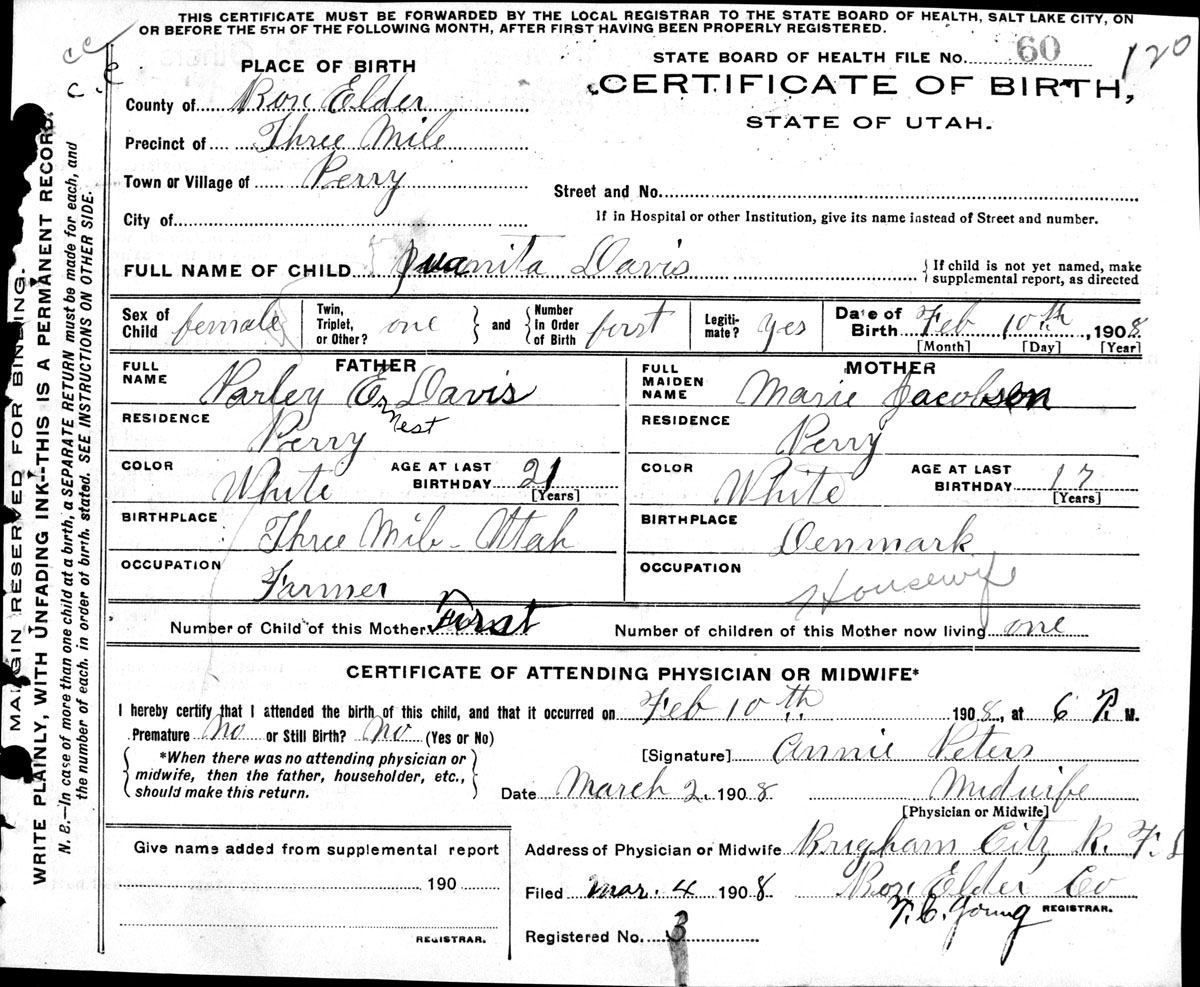 THIS CERTIFICATE MUST BE FORWARDED BY THE LOCAL REGISTRAR TO THE STATE BOARD OF HEALTH, SALT LAKE CITY, ON
OR BEFORE THE 5TH OF THE FOLLOWING MONTH, AFTER FIRST HAVING BEEN PROPERLY REGISTERED.
STATE BOARD OF HEALTH FILE No. 60
120
PLACE OF BIRTH
CERTIFICATE OF BIRTH,
STATE OF UTAH.
County of Box Elder
Precinct of Three Mile
Town or Village of Perry
Street and No.
City of
If in Hospital or other Institution, give its name instead of Street and number.
FULL NAME OF CHILD Juanita Davis
If child is not yet named, make
supplemental report, as directed
Sex of Child female
Twin, Triplet, or Other? one and Number In Order of Birth first
Legitimate? yes
Date of Birth Feb 10th, 1908
[Month] [Day] [Year]
FATHER
FULL NAME Parley Ernest Davis
RESIDENCE Perry
COLOR White AGE AT LAST BIRTHDAY 21 [Years]
BIRTHPLACE Three Mile - Utah
OCCUPATION Farmer
MOTHER
FULL MAIDEN NAME Marie Jacobson
RESIDENCE Perry
COLOR White AGE AT LAST BIRTHDAY 17 [Years]
BIRTHPLACE Denmark
OCCUPATION Housewife
Number of Child of this Mother First Number of children of this Mother now living one
CERTIFICATE OF ATTENDING PHYSICIAN OR MIDWIFE*
I hereby certify that I attended the birth of this child, and that it occurred on Feb 10th 1908, at 6 P. M.
Premature No or Still Birth? No (Yes or No)
*When there was no attending physician or
midwife, then the father, householder, etc.,
should make this return.
[Signature] Annie Peters
Date March 2, 1908 Midwife
[Physician or Midwife]
Give name added from supplemental report
190
REGISTRAR.
Address of Physician or Midwife Brigham City R. F. D
Box Elder Co
Filed Mar. 4 1908
T. C. Young REGISTRAR.
Registered No. 3
MARGIN RESERVED FOR BINDING.
WRITE PLAINLY, WITH UNFADING INK--THIS IS A PERMANENT RECORD.
N. B.—In case of more than one child at a birth, a SEPARATE RETURN must be made for each, and
the number of each, in order of birth, stated. SEE INSTRUCTIONS ON OTHER SIDE.